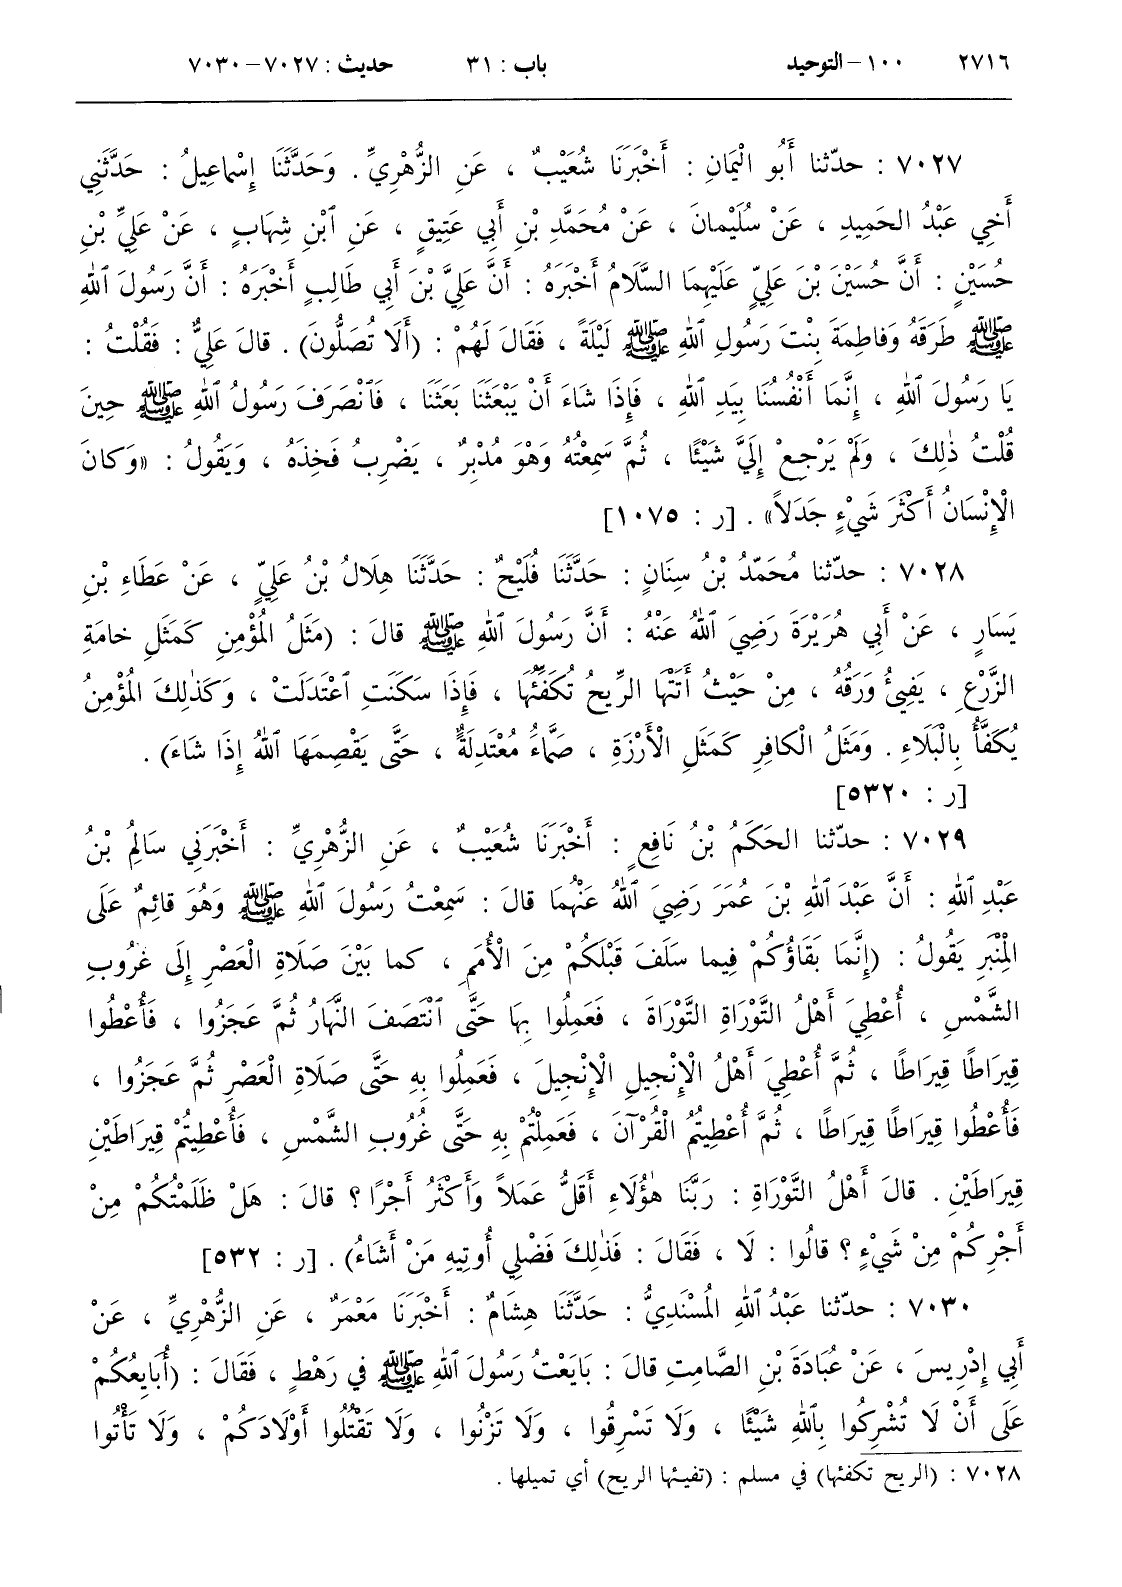 ٢٧١٦ ١٠٠ – التوحيد باب : ٣١ حديث : ٧٠٢٧ – ٧٠٣٠
٧٠٢٧ : حدّثنا أَبُو الْيَمانِ : أَخْبَرَنَا شُعَيْبٌ ، عَنِ الزُّهْرِيِّ . وَحَدَّثَنَا إِسْماعِيلُ : حَدَّثَنِي
أَخِي عَبْدُ الحَمِيدِ ، عَنْ سُلَيْمانَ ، عَنْ مُحَمَّدِ بْنِ أَبِي عَتِيقٍ ، عَنِ ٱبْنِ شِهَابٍ ، عَنْ عَلِيِّ بْنِ
حُسَيْنٍ : أَنَّ حُسَيْنَ بْنَ عَلِيٍّ عَلَيْهِمَا السَّلَامُ أَخْبَرَهُ : أَنَّ عَلِيَّ بْنَ أَبِي طَالِبٍ أَخْبَرَهُ : أَنَّ رَسُولَ ٱللهِ
ﷺ طَرَقَهُ وَفاطِمَةَ بِنْتَ رَسُولِ ٱللهِ ﷺ لَيْلَةً ، فَقَالَ لَهُمْ : (أَلَا تُصَلُّونَ) . قالَ عَلِيٌّ : فَقُلْتُ :
يَا رَسُولَ ٱللهِ ، إِنَّمَا أَنْفُسُنَا بِيَدِ ٱللهِ ، فَإِذَا شَاءَ أَنْ يَبْعَثَنَا بَعَثَنَا ، فَٱنْصَرَفَ رَسُولُ ٱللهِ ﷺ حِينَ
قُلْتُ ذٰلِكَ ، وَلَمْ يَرْجِعْ إِلَيَّ شَيْئًا ، ثُمَّ سَمِعْتُهُ وَهْوَ مُدْبِرٌ ، يَضْرِبُ فَخِذَهُ ، وَيَقُولُ : «وَكانَ
الْإِنْسَانُ أَكْثَرَ شَيْءٍ جَدَلاً» . [ر : ١٠٧٥]
٧٠٢٨ : حدّثنا مُحَمَّدُ بْنُ سِنَانٍ : حَدَّثَنَا فُلَيْحٌ : حَدَّثَنَا هِلَالُ بْنُ عَلِيٍّ ، عَنْ عَطَاءِ بْنِ
يَسَارٍ ، عَنْ أَبِي هُرَيْرَةَ رَضِيَ ٱللهُ عَنْهُ : أَنَّ رَسُولَ ٱللهِ ﷺ قالَ : (مَثَلُ المُؤْمِنِ كَمَثَلِ خامَةِ
الزَّرْعِ ، يَفِيءُ وَرَقُهُ ، مِنْ حَيْثُ أَتَتْهَا الرِّيحُ تُكَفِّئُهَا ، فَإِذَا سَكَنَتِ ٱعْتَدَلَتْ ، وَكَذٰلِكَ المُؤْمِنُ
يُكَفَّأُ بِالْبَلَاءِ . وَمَثَلُ الْكافِرِ كَمَثَلِ الْأَرْزَةِ ، صَمَّاءُ مُعْتَدِلَةٌ ، حَتَّى يَقْصِمَهَا ٱللهُ إِذَا شَاءَ) .
[ر : ٥٣٢٠]
٧٠٢٩ : حدّثنا الحَكَمُ بْنُ نَافِعٍ : أَخْبَرَنَا شُعَيْبٌ ، عَنِ الزُّهْرِيِّ : أَخْبَرَنِي سَالِمُ بْنُ
عَبْدِ ٱللهِ : أَنَّ عَبْدَ ٱللهِ بْنَ عُمَرَ رَضِيَ ٱللهُ عَنْهُمَا قالَ : سَمِعْتُ رَسُولَ ٱللهِ ﷺ وَهُوَ قائِمٌ عَلَى
الْمِنْبَرِ يَقُولُ : (إِنَّمَا بَقَاؤُكُمْ فِيما سَلَفَ قَبْلَكُمْ مِنَ الْأُمَمِ ، كما بَيْنَ صَلَاةِ الْعَصْرِ إِلَى غُرُوبِ
الشَّمْسِ ، أُعْطِيَ أَهْلُ التَّوْرَاةِ التَّوْرَاةَ ، فَعَمِلُوا بِهَا حَتَّى ٱنْتَصَفَ النَّهَارُ ثُمَّ عَجَزُوا ، فَأُعْطُوا
قِيرَاطًا قِيرَاطًا ، ثُمَّ أُعْطِيَ أَهْلُ الْإِنْجِيلِ الْإِنْجِيلَ ، فَعَمِلُوا بِهِ حَتَّى صَلَاةِ الْعَصْرِ ثُمَّ عَجَزُوا ،
فَأُعْطُوا قِيرَاطًا قِيرَاطًا ، ثُمَّ أُعْطِيتُمُ الْقُرْآنَ ، فَعَمِلْتُمْ بِهِ حَتَّى غُرُوبِ الشَّمْسِ ، فَأُعْطِيتُمْ قِيرَاطَيْنِ
قِيرَاطَيْنِ . قالَ أَهْلُ التَّوْرَاةِ : رَبَّنَا هٰؤُلَاءِ أَقَلُّ عَمَلاً وَأَكْثَرُ أَجْرًا ؟ قالَ : هَلْ ظَلَمْتُكُمْ مِنْ
أَجْرِكُمْ مِنْ شَيْءٍ ؟ قالُوا : لَا ، فَقَالَ : فَذٰلِكَ فَضْلِي أُوتِيهِ مَنْ أَشَاءُ) . [ر : ٥٣٢]
٧٠٣٠ : حدّثنا عَبْدُ ٱللهِ المُسْنَدِيُّ : حَدَّثَنَا هِشَامٌ : أَخْبَرَنَا مَعْمَرٌ ، عَنِ الزُّهْرِيِّ ، عَنْ
أَبِي إِدْرِيسَ ، عَنْ عُبَادَةَ بْنِ الصَّامِتِ قالَ : بَايَعْتُ رَسُولَ ٱللهِ ﷺ في رَهْطٍ ، فَقَالَ : (أُبَايِعُكُمْ
عَلَى أَنْ لَا تُشْرِكُوا بِٱللهِ شَيْئًا ، وَلَا تَسْرِقُوا ، وَلَا تَزْنُوا ، وَلَا تَقْتُلُوا أَوْلَادَكُمْ ، وَلَا تَأْتُوا
٧٠٢٨ : (الريح تكفئها) في مسلم : (تفيئها الريح) أي تميلها .